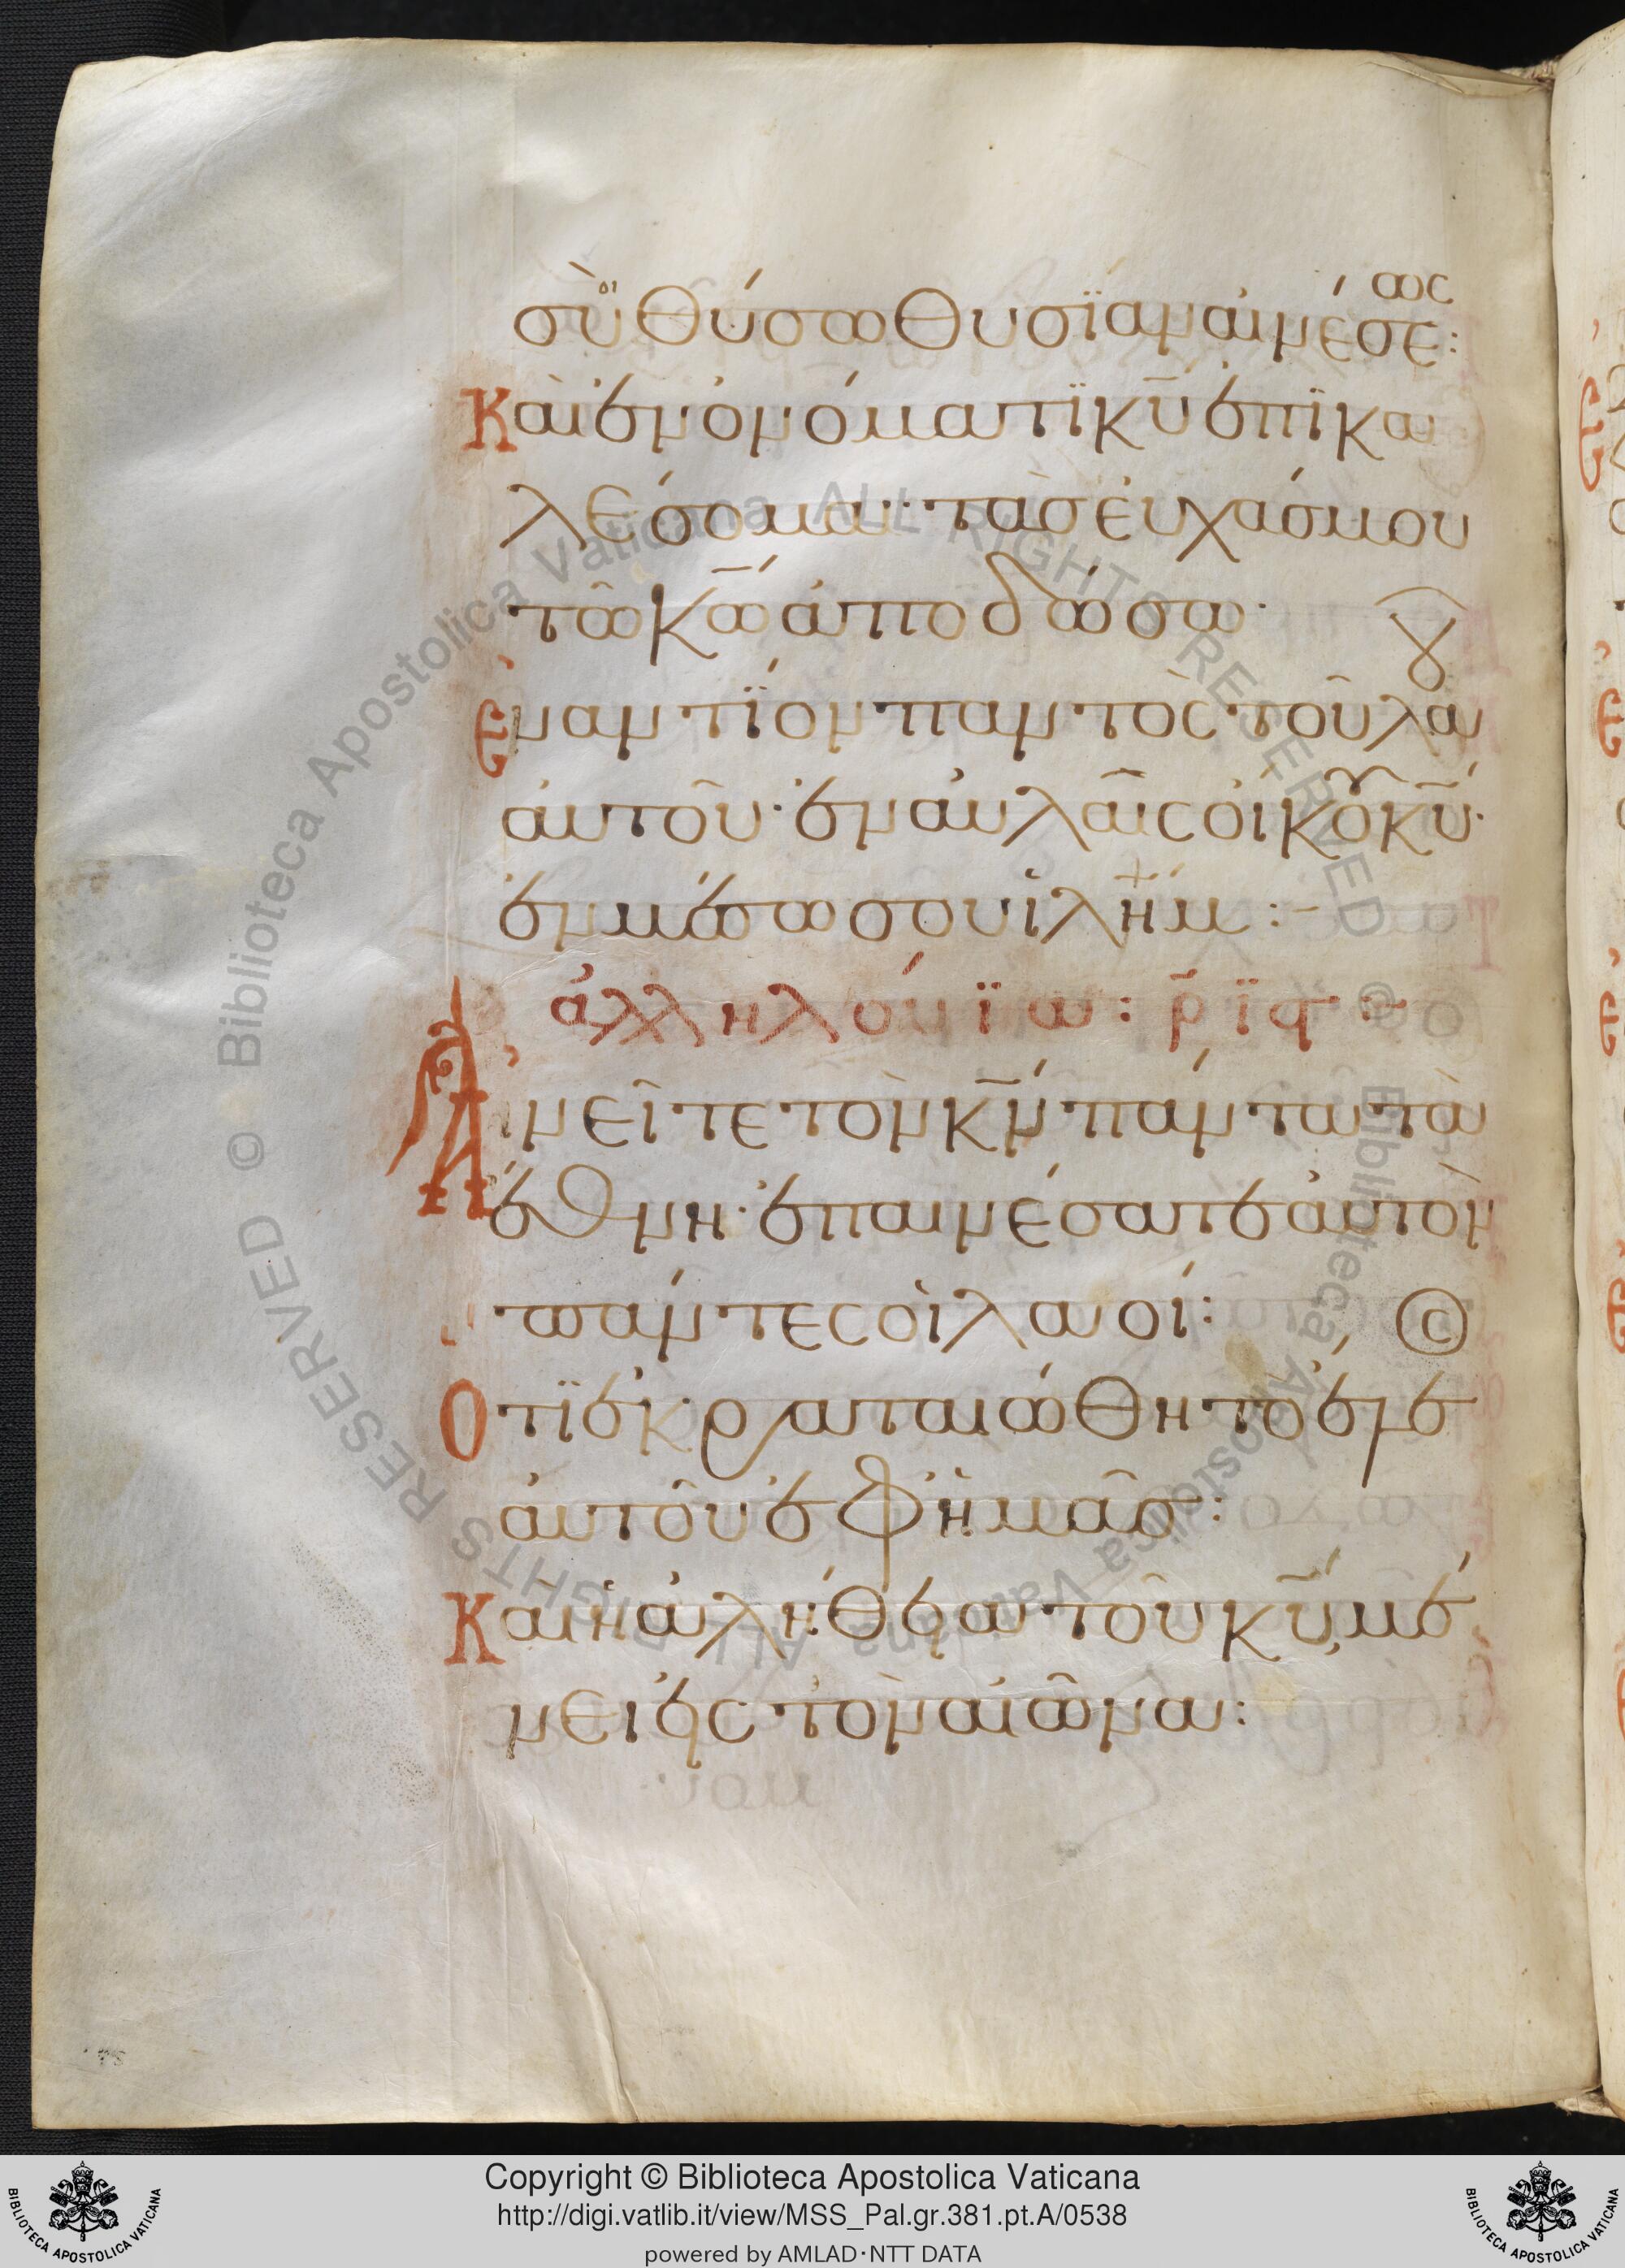 σὺ θύσω θυσΐαν αἰνέσεως:
Καὶ ἐν ὀνόματϊ κυ̅ ἐπϊκα
λέσομαι· τὰσ ἐυχάσ μου
τῶ κω̅ ἀποδώσω·
ἐναντΐον παντὸς τοῦ λαου
ἀυτοῦ· ἐν ἀυλαῖς οἴκου κυ̅·
ἐν μέσω σου ἱλη̅μ :-
ἀλληλούϊα : ρ̅ϊϛ :-
Ἀινεῖτε τὸν κν̅ πάντα τὰ
ἔθνη· ἐπαινέσατε ἀυτὸν
πάντες οἱ λαοί:
Οτϊ ἐκραταιώθη τὸ ἔλε
ος
ἀυτοῦ ἐφ ἡμᾶσ:
Καὶ ἡ ἀλήθεια τοῦ κυ̅, μέ
νει εἰς τὸν αἰῶνα:
© Biblioteca Apostolica Vaticana ALL RIGHTS RESERVED © Biblioteca Apostolica Vaticana ALL RIGHTS RESERVED
Copyright © Biblioteca Apostolica Vaticana
http://digi.vatlib.it/view/MSS_Pal.gr.381.pt.A/0538
powered by AMLAD·NTT DATA
BIBLIOTECA APOSTOLICA VATICANA
BIBLIOTECA APOSTOLICA VATICANA